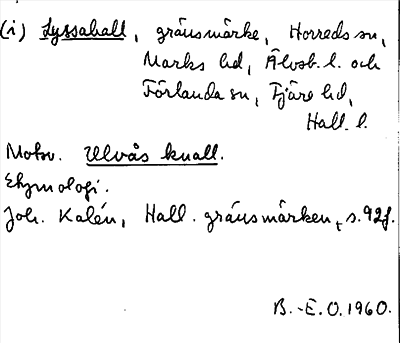 (i) Lyssahall, gränsmärke, Horreds sn,
Marks hd, Älvsb. l. och
Förlanda sn, Fjäre hd,
Hall. l.
Motsv. Ulvås knall.
Etymologi.
Joh. Kalén, Hall. gränsmärken, s. 92f.
B.-E.O. 1960.